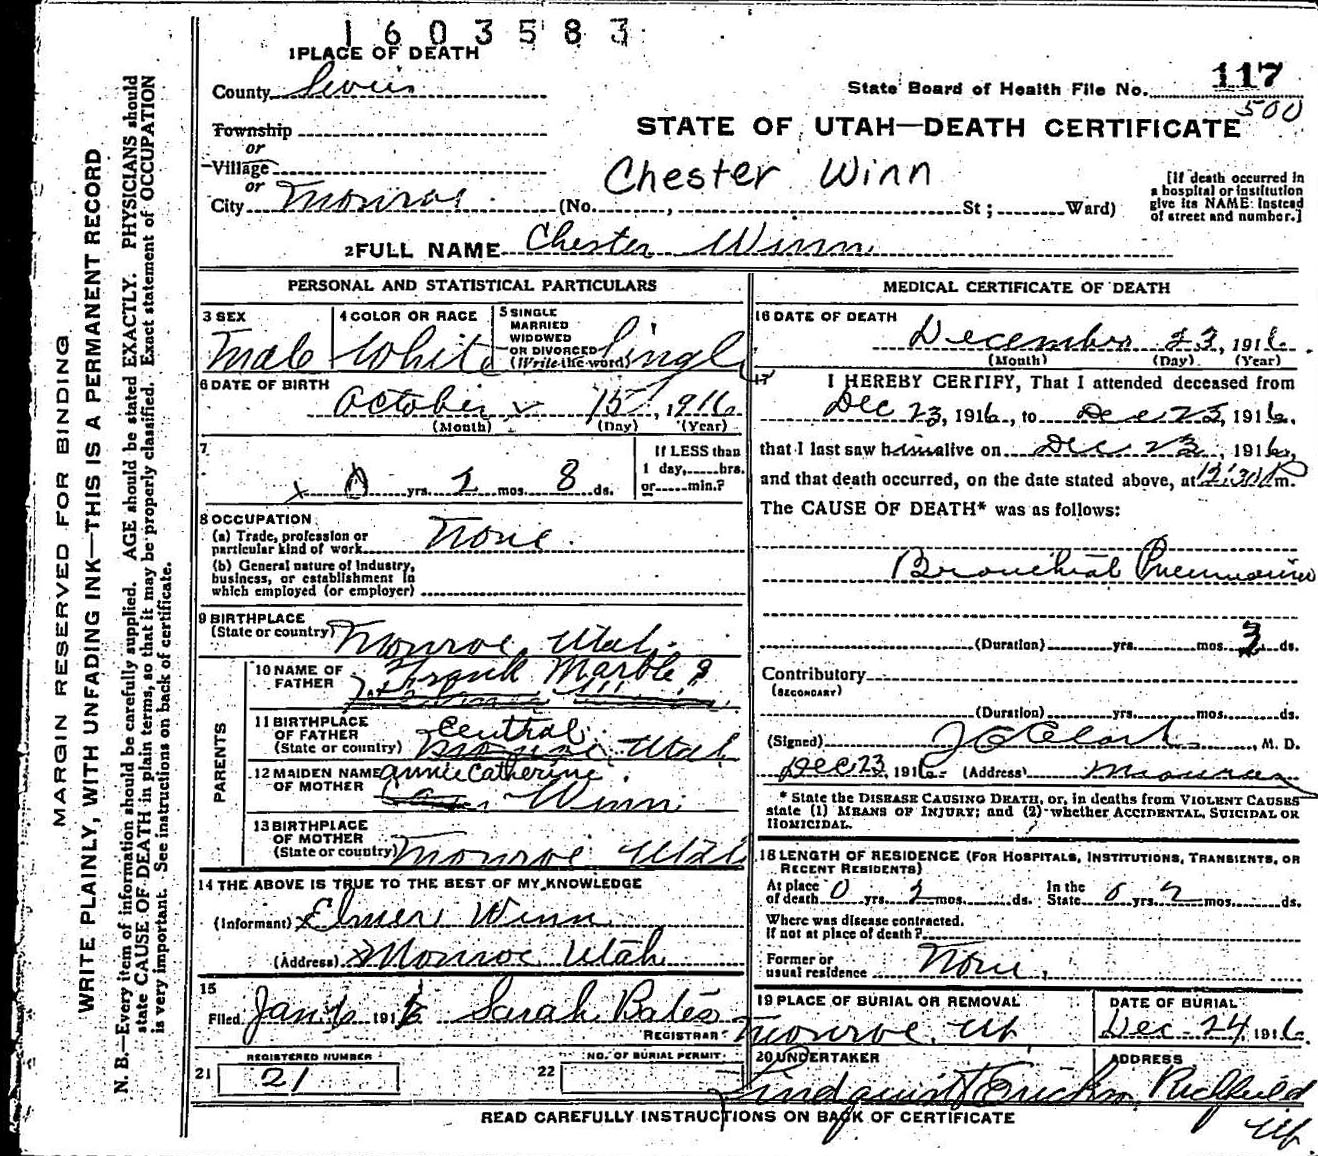 1603583
1 PLACE OF DEATH
County Sevier
State Board of Health File No. 117
500
Township
or
Village
or
City Monroe (No. , St; Ward)
STATE OF UTAH—DEATH CERTIFICATE
Chester Winn
[If death occurred in
a hospital or institution
give its NAME instead
of street and number.]
2 FULL NAME Chester Winn
PERSONAL AND STATISTICAL PARTICULARS
3 SEX
Male
4 COLOR OR RACE
White
5 SINGLE
MARRIED
WIDOWED
OR DIVORCED
(Write the word)
Single
6 DATE OF BIRTH
October 15, 1916
(Month) (Day) (Year)
7
0 yrs. 2 mos. 8 ds.
If LESS than
1 day, hrs.
or min.?
8 OCCUPATION
(a) Trade, profession or
particular kind of work
None
(b) General nature of industry,
business, or establishment in
which employed (or employer)
9 BIRTHPLACE
(State or country) Monroe, Utah.
PARENTS
10 NAME OF
FATHER
Frank Marble ?
11 BIRTHPLACE
OF FATHER
(State or country)
Central
Utah
12 MAIDEN NAME
OF MOTHER
Annie Catherine
Winn
13 BIRTHPLACE
OF MOTHER
(State or country) Monroe Utah
14 THE ABOVE IS TRUE TO THE BEST OF MY KNOWLEDGE
(Informant) Elmer Winn
(Address) Monroe Utah
15
Filed Jan 191 Sarah Bates
REGISTRAR
REGISTERED NUMBER
21 21
NO. OF BURIAL PERMIT
22
MEDICAL CERTIFICATE OF DEATH
16 DATE OF DEATH
December 23, 1916.
(Month) (Day) (Year)
17 I HEREBY CERTIFY, That I attended deceased from
Dec 23, 1916, to Dec 23, 1916.
that I last saw him alive on Dec 23, 1916,
and that death occurred, on the date stated above, at m.
The CAUSE OF DEATH* was as follows:
Bronchial Pneumonia
(Duration) yrs. mos. 3 ds.
Contributory
(SECONDARY)
(Duration) yrs. mos. ds.
(Signed) J G Clark, M. D.
Dec 23, 1916 (Address) Monroe
* State the DISEASE CAUSING DEATH, or, in deaths from VIOLENT CAUSES
state (1) MEANS OF INJURY; and (2) whether ACCIDENTAL, SUICIDAL OR
HOMICIDAL.
18 LENGTH OF RESIDENCE (FOR HOSPITALS, INSTITUTIONS, TRANSIENTS, OR
RECENT RESIDENTS)
At place
of death 0 yrs. 2 mos. ds.
In the
State 0 yrs. 2 mos. ds.
Where was disease contracted.
If not at place of death?
Former or
usual residence None
19 PLACE OF BURIAL OR REMOVAL
Monroe, Ut
DATE OF BURIAL
Dec. 24, 1916.
20 UNDERTAKER
Lindquist & Erickson
ADDRESS
Richfield
Ut.
READ CAREFULLY INSTRUCTIONS ON BACK OF CERTIFICATE
MARGIN RESERVED FOR BINDING
WRITE PLAINLY, WITH UNFADING INK—THIS IS A PERMANENT RECORD
N. B.—Every item of information should be carefully supplied. AGE should be stated EXACTLY. PHYSICIANS should
state CAUSE OF DEATH in plain terms, so that it may be properly classified. Exact statement of OCCUPATION
is very important. See instructions on back of certificate.